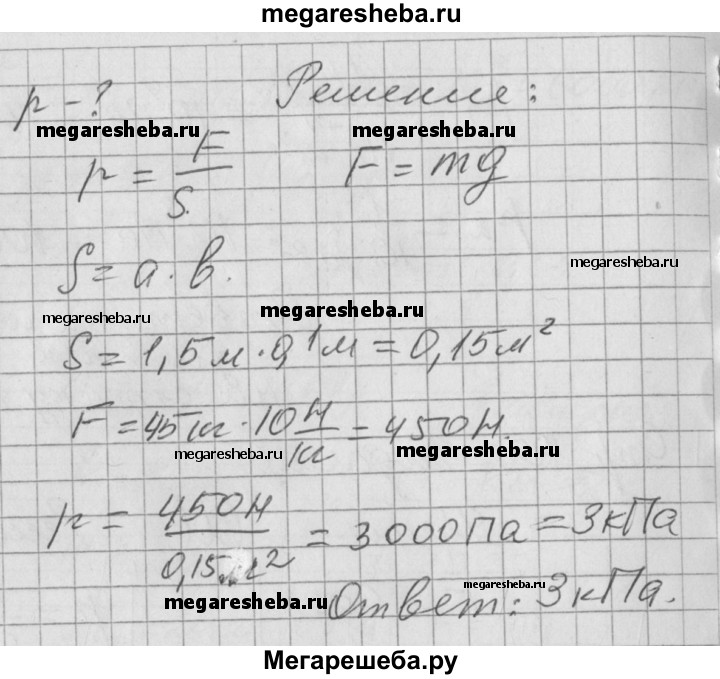 megaresheba.ru
p - ? Решение:
megaresheba.ru megaresheba.ru
p = F/S F = mg
S = a · b.
megaresheba.ru
megaresheba.ru megaresheba.ru
S = 1,5м · 0,1м = 0,15м²
F = 45кг · 10 Н/кг = 450Н.
megaresheba.ru megaresheba.ru
p = 450Н/0,15м² = 3000Па = 3кПа
megaresheba.ru megaresheba.ru
Ответ: 3кПа.
Мегарешеба.ру